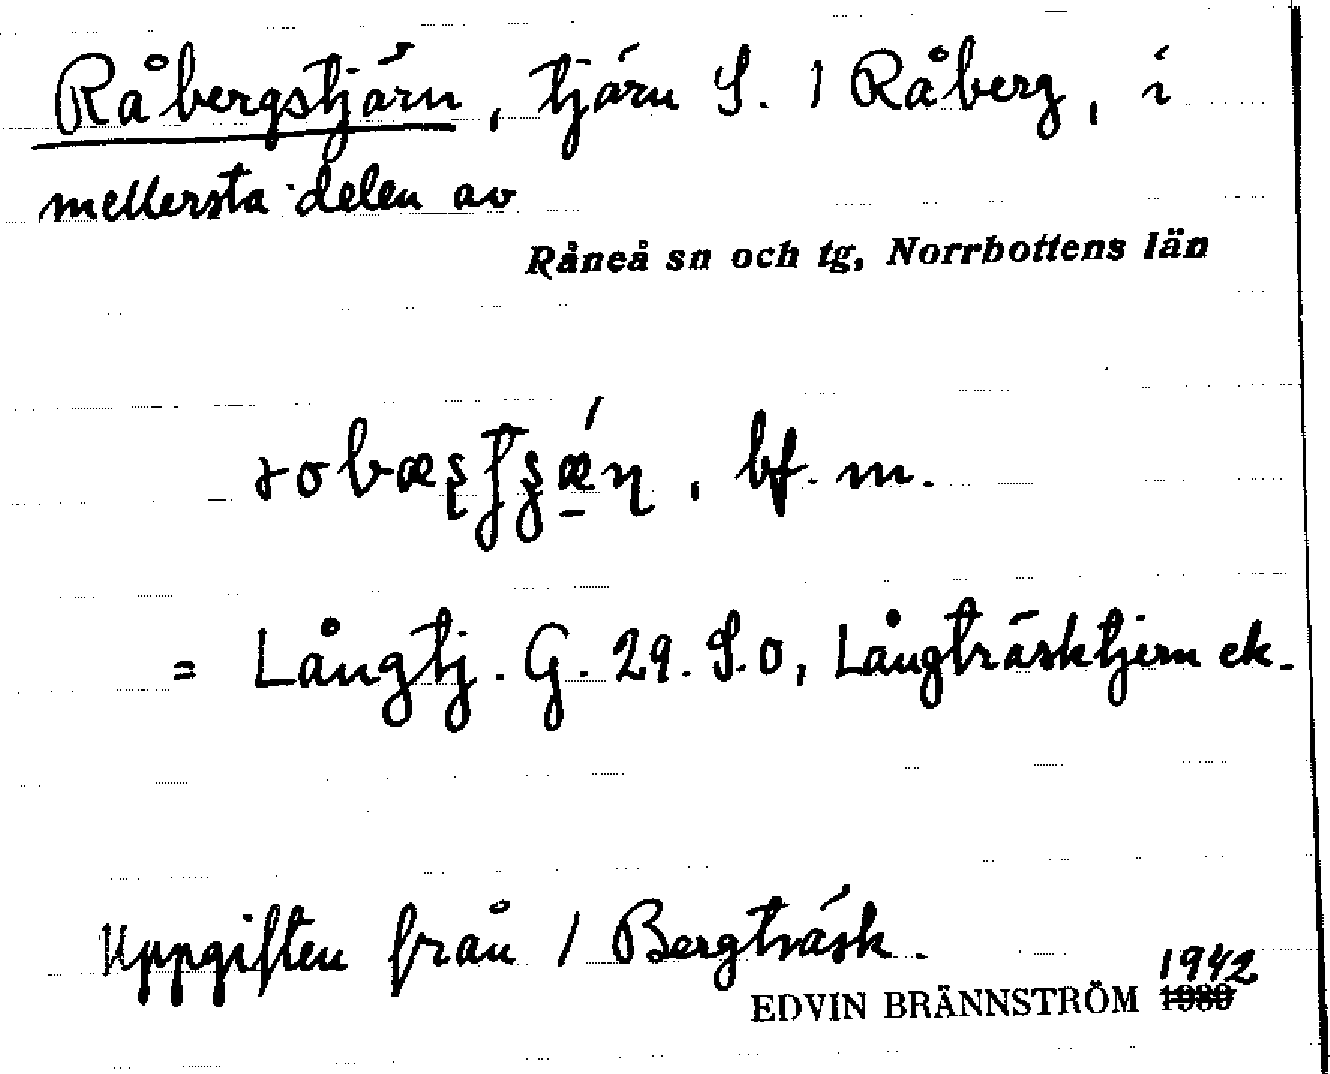 Råbergstjärn, tjärn S. / Råberg, i
mellersta delen av
Råneå sn och tg, Norrbottens län
, bf. m.
= Långtj. G. 29. S.O, Långträsktjern ek.
Uppgiften från / Bergträsk.
1942
EDVIN BRÄNNSTRÖM 1930